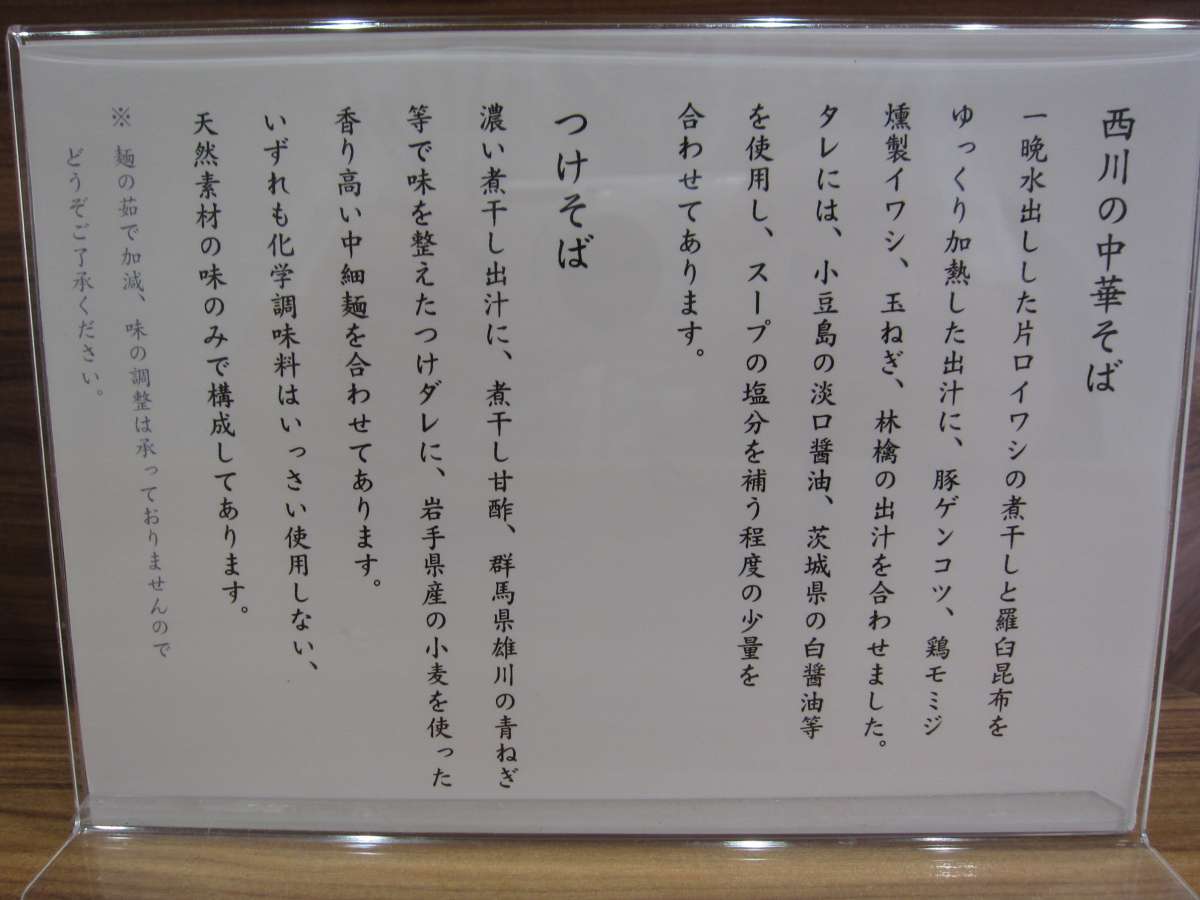 西川の中華そば
一晩水出しした片口イワシの煮干しと羅臼昆布を
ゆっくり加熱した出汁に、豚ゲンコツ、鶏モミジ
燻製イワシ、玉ねぎ、林檎の出汁を合わせました。
タレには、小豆島の淡口醤油、茨城県の白醤油等
を使用し、スープの塩分を補う程度の少量を
合わせてあります。
つけそば
濃い煮干し出汁に、煮干し甘酢、群馬県雄川の青ねぎ
等で味を整えたつけダレに、岩手県産の小麦を使った
香り高い中細麺を合わせてあります。
いずれも化学調味料はいっさい使用しない、
天然素材の味のみで構成してあります。
※ 麺の茹で加減、味の調整は承っておりませんので
どうぞご了承ください。